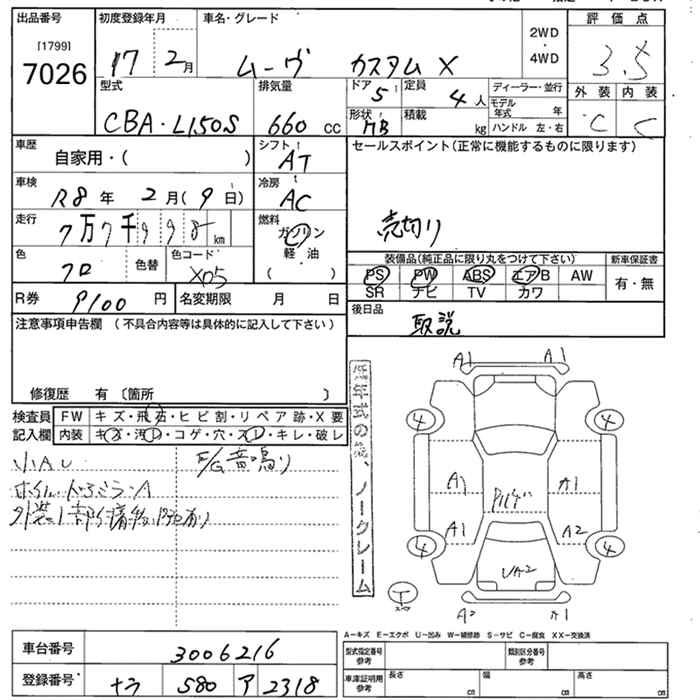 出品番号 初度登録年月 車名・グレード 評価点
[1799]
7026 17年 2月 ムーヴ カスタム X 2WD・4WD 3.5
型式 排気量 ドア 定員 ディーラー・並行 外装 内装
CBA・L150S 660 CC 5 4人 モデル年式 年 C C
形状 HB 積載 kg ハンドル 左・右
車歴 シフト セールスポイント(正常に機能するものに限ります)
自家用・( ) AT
車検 冷房
R8年 2月(9日) AC
走行 燃料 売切り
7万7千998km ガソリン
軽油
( )
色 色替 色コード 装備品(純正品に限り丸をつけて下さい) 新車保証書
クロ X05 PS PW ABS エアB AW 有・無
SR ナビ TV カワ
R券 9100円 名変期限 月 日 後日品
取説
注意事項申告欄 (不具合内容等は具体的に記入して下さい)
修復歴 有 〔箇所 〕
検査員 FW キズ・飛石・ヒビ割・リペア跡・X要
記入欄 内装 キズ・汚レ・コゲ・穴・スレ・キレ・破レ
小AU E/G音鳴り
ホイル・ドアミラーA
ノークレーム
A1 A1
4 4
A1 A1
A1 A2
4 4
UA2
T
スペア
A2 A1
A−キズ E−エクボ U−凹み W−補修跡 S−サビ C−腐食 XX−交換済
車台番号 3006216 型式指定番号 参考 類別区分番号 参考
登録番号 ナラ 580 ア 2318 車庫証明用 参考 長さ cm 幅 cm 高さ cm